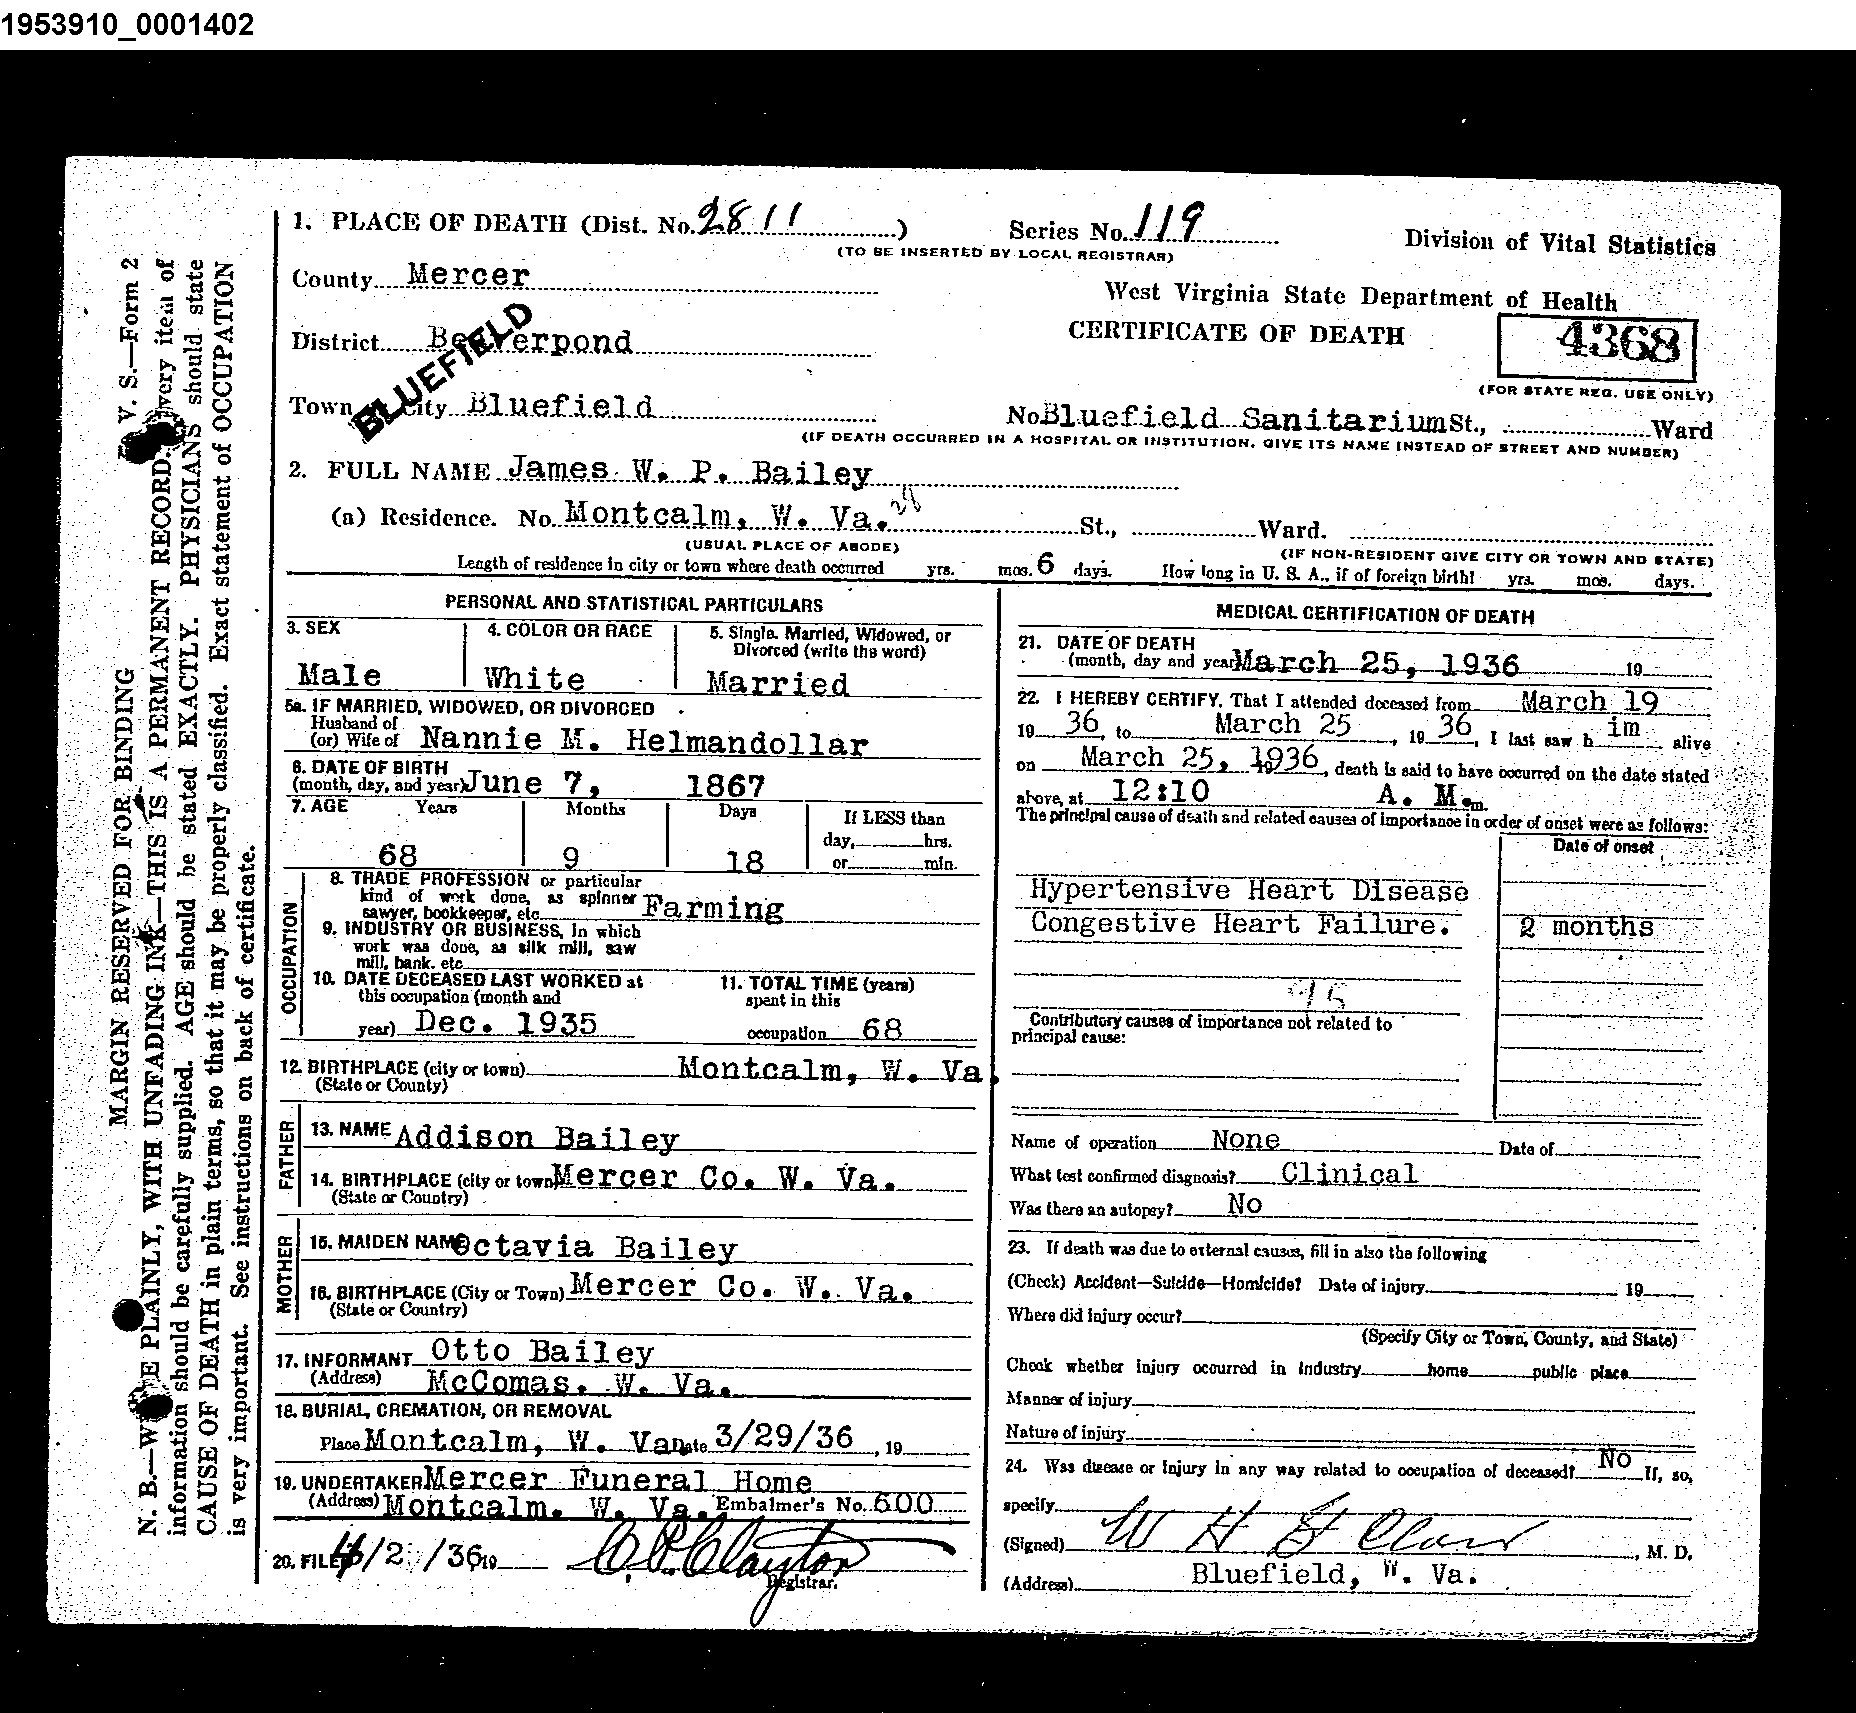 1953910_0001402
1. PLACE OF DEATH (Dist. No. 2811 ) Series No. 119 Division of Vital Statistics
(TO BE INSERTED BY LOCAL REGISTRAR)
County Mercer
West Virginia State Department of Health
District Beaverpond
CERTIFICATE OF DEATH 4368
BLUEFIELD
(FOR STATE REG. USE ONLY)
Town City Bluefield No. Bluefield Sanitarium St., Ward
(IF DEATH OCCURRED IN A HOSPITAL OR INSTITUTION, GIVE ITS NAME INSTEAD OF STREET AND NUMBER)
2. FULL NAME James W. P. Bailey
(a) Residence. No. Montcalm, W. Va. St., Ward.
(USUAL PLACE OF ABODE) (IF NON-RESIDENT GIVE CITY OR TOWN AND STATE)
Length of residence in city or town where death occurred yrs. mos. 6 days. How long in U. S. A., if of foreign birth? yrs. mos. days.
PERSONAL AND STATISTICAL PARTICULARS
3. SEX 4. COLOR OR RACE 5. Single, Married, Widowed, or
Divorced (write the word)
Male White Married
5a. IF MARRIED, WIDOWED, OR DIVORCED
Husband of
(or) Wife of Nannie M. Helmandollar
6. DATE OF BIRTH
(month, day, and year) June 7, 1867
7. AGE Years Months Days If LESS than
day, hrs.
68 9 18 or min.
OCCUPATION
8. TRADE PROFESSION or particular
kind of work done, as spinner
sawyer, bookkeeper, etc. Farming
9. INDUSTRY OR BUSINESS, in which
work was done, as silk mill, saw
mill, bank, etc.
10. DATE DECEASED LAST WORKED at 11. TOTAL TIME (years)
this occupation (month and spent in this
year) Dec. 1935 occupation 68
12. BIRTHPLACE (city or town) Montcalm, W. Va.
(State or County)
FATHER
13. NAME Addison Bailey
14. BIRTHPLACE (city or town) Mercer Co. W. Va.
(State or Country)
MOTHER
15. MAIDEN NAME Octavia Bailey
16. BIRTHPLACE (City or Town) Mercer Co. W. Va.
(State or Country)
17. INFORMANT Otto Bailey
(Address) McComas. W. Va.
18. BURIAL, CREMATION, OR REMOVAL
Place Montcalm, W. Va. Date 3/29/36 , 19
19. UNDERTAKER Mercer Funeral Home
(Address) Montcalm. W. Va. Embalmer's No. 600
20. FILED 4/2 /36 19 C. P. Clayton
Registrar.
MEDICAL CERTIFICATION OF DEATH
21. DATE OF DEATH
(month, day and year) March 25, 1936 19
22. I HEREBY CERTIFY, That I attended deceased from March 19
19 36, to March 25 , 19 36, I last saw h im alive
on March 25, 1936, death is said to have occurred on the date stated
above, at 12:10 A. M. m.
The principal cause of death and related causes of importance in order of onset were as follows:
Date of onset
Hypertensive Heart Disease
Congestive Heart Failure. 2 months
95
Contributory causes of importance not related to
principal cause:
Name of operation None Date of
What test confirmed diagnosis? Clinical
Was there an autopsy? No
23. If death was due to external causes, fill in also the following
(Check) Accident—Suicide—Homicide? Date of injury 19
Where did injury occur?
(Specify City or Town, County, and State)
Check whether injury occurred in industry home public place
Manner of injury
Nature of injury
24. Was disease or injury in any way related to occupation of deceased? No If, so,
specify
(Signed) W H , M. D.
(Address) Bluefield, W. Va.
V. S.—Form 2
MARGIN RESERVED FOR BINDING
N. B.—WRITE PLAINLY, WITH UNFADING INK—THIS IS A PERMANENT RECORD. Every item of
information should be carefully supplied. AGE should be stated EXACTLY. PHYSICIANS should state
CAUSE OF DEATH in plain terms, so that it may be properly classified. Exact statement of OCCUPATION
is very important. See instructions on back of certificate.